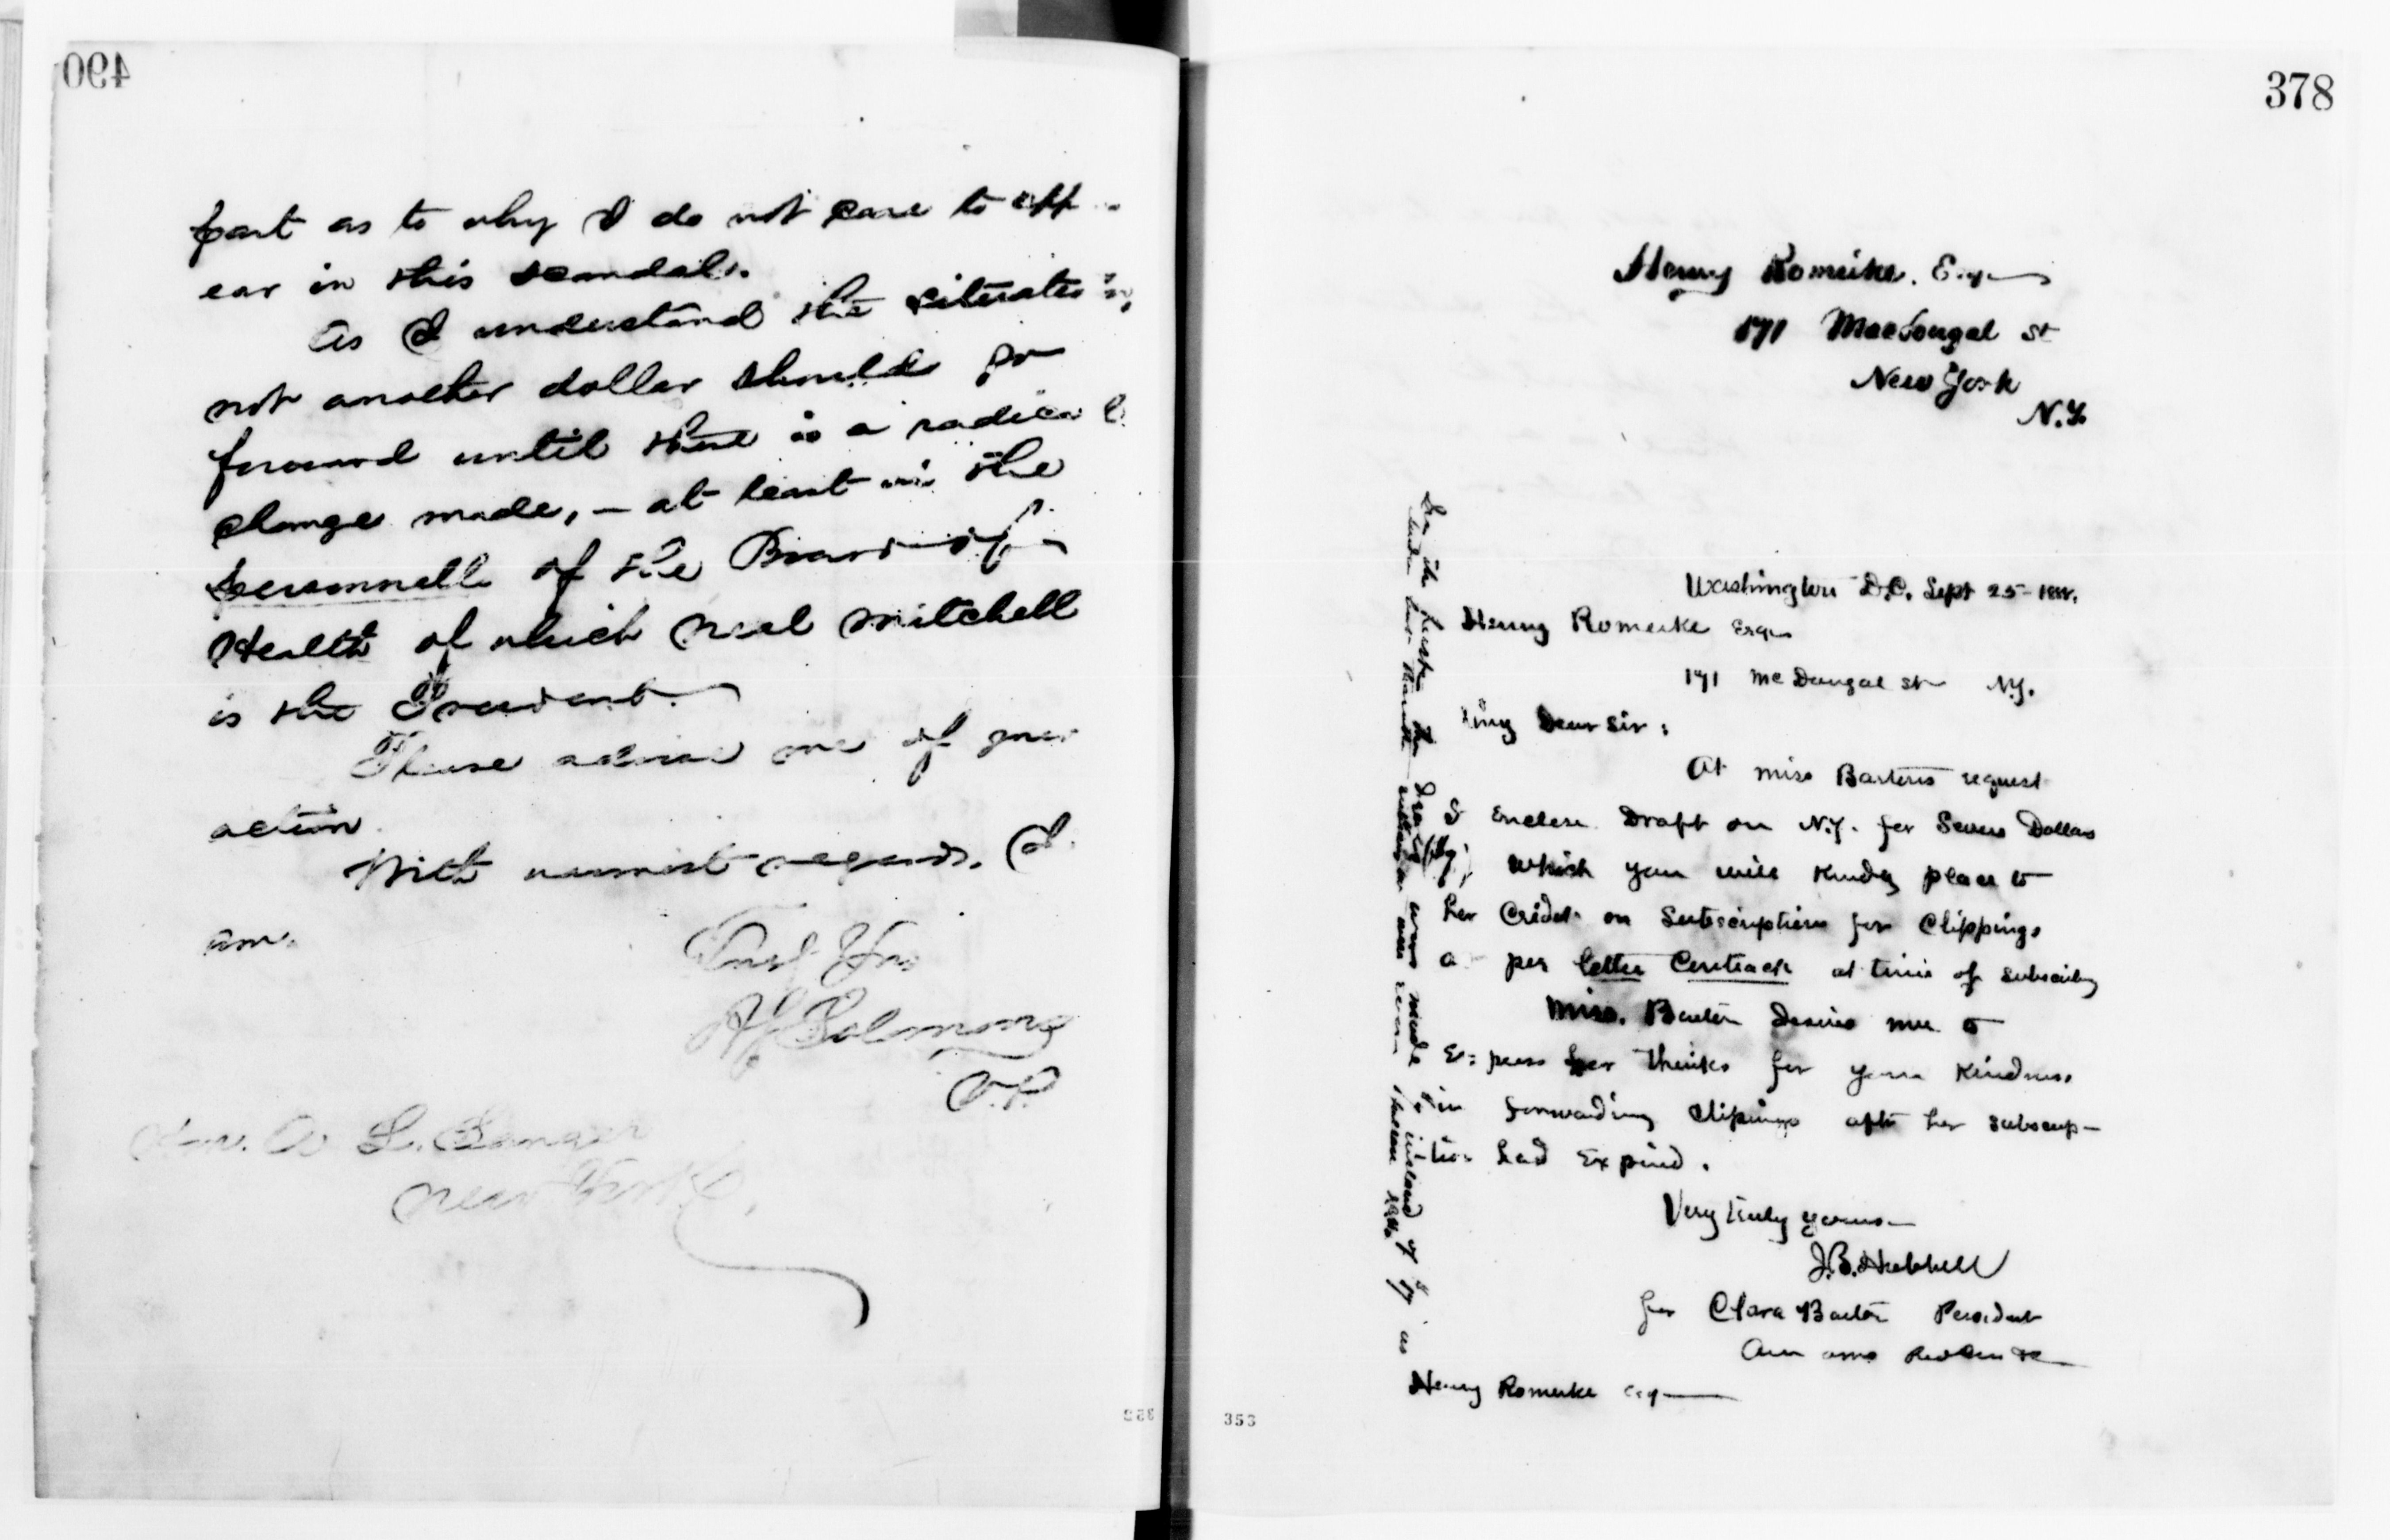 490
part as to why I do not care to app
ear in this scandal.
As I understand the situation,
not another dollar should go
forward until there is a radical
change made, – at least in the
personnell of the Board of
Health of which Neal Mitchell
is the President.
Please advise me of your
action.
With warmest regards, I
am.
A S Solomons
V.P.
Hon. A L.
New York
353
378
Henry Romeike. Esq
171 MacDougal St
New York
N.Y.
Washington D.C. Sept 25 – 1888.
Henry Romeike Esqr
171 McDougal St N.Y.
My Dear Sir:
At Miss Bartons request
I Enclose Draft on N.Y. for Seven Dollars
which you will Kindly place to
her Credit on Subscription for Clippings
as per letter Contract at time of subscribing
Miss. Barton desires me to
Express her thanks for your Kindness
in forwarding Clipings after her subscrip–
tion had Expired.
Very truly yours
J.B. Hubbell
for Clara Barton President
Am Asso Red Cross
Henry Romeike Esq
353
the draft was made instead of as